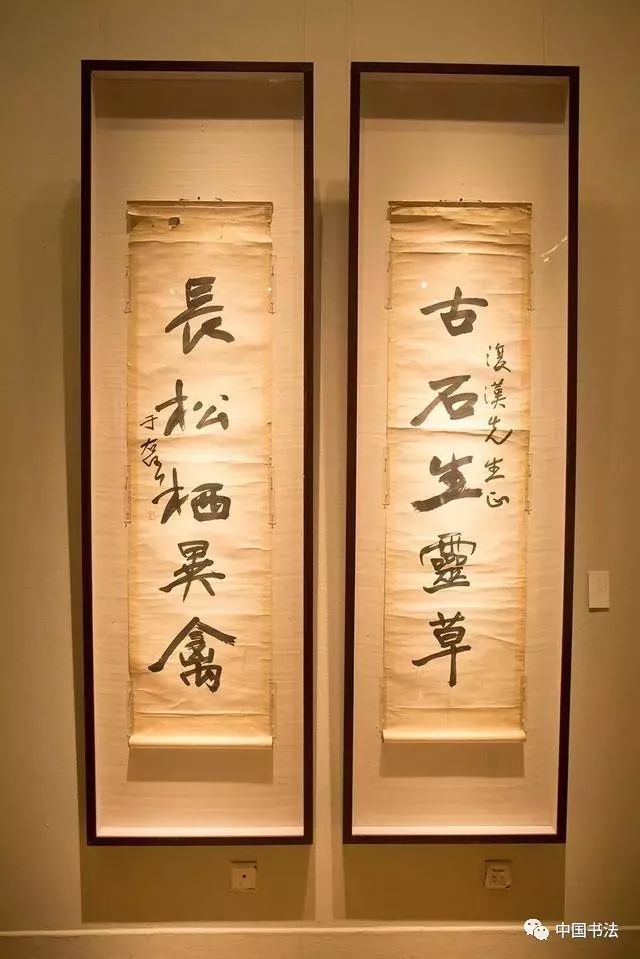 古石生靈草
復漢先生正
長松栖異禽
于右任
中国书法